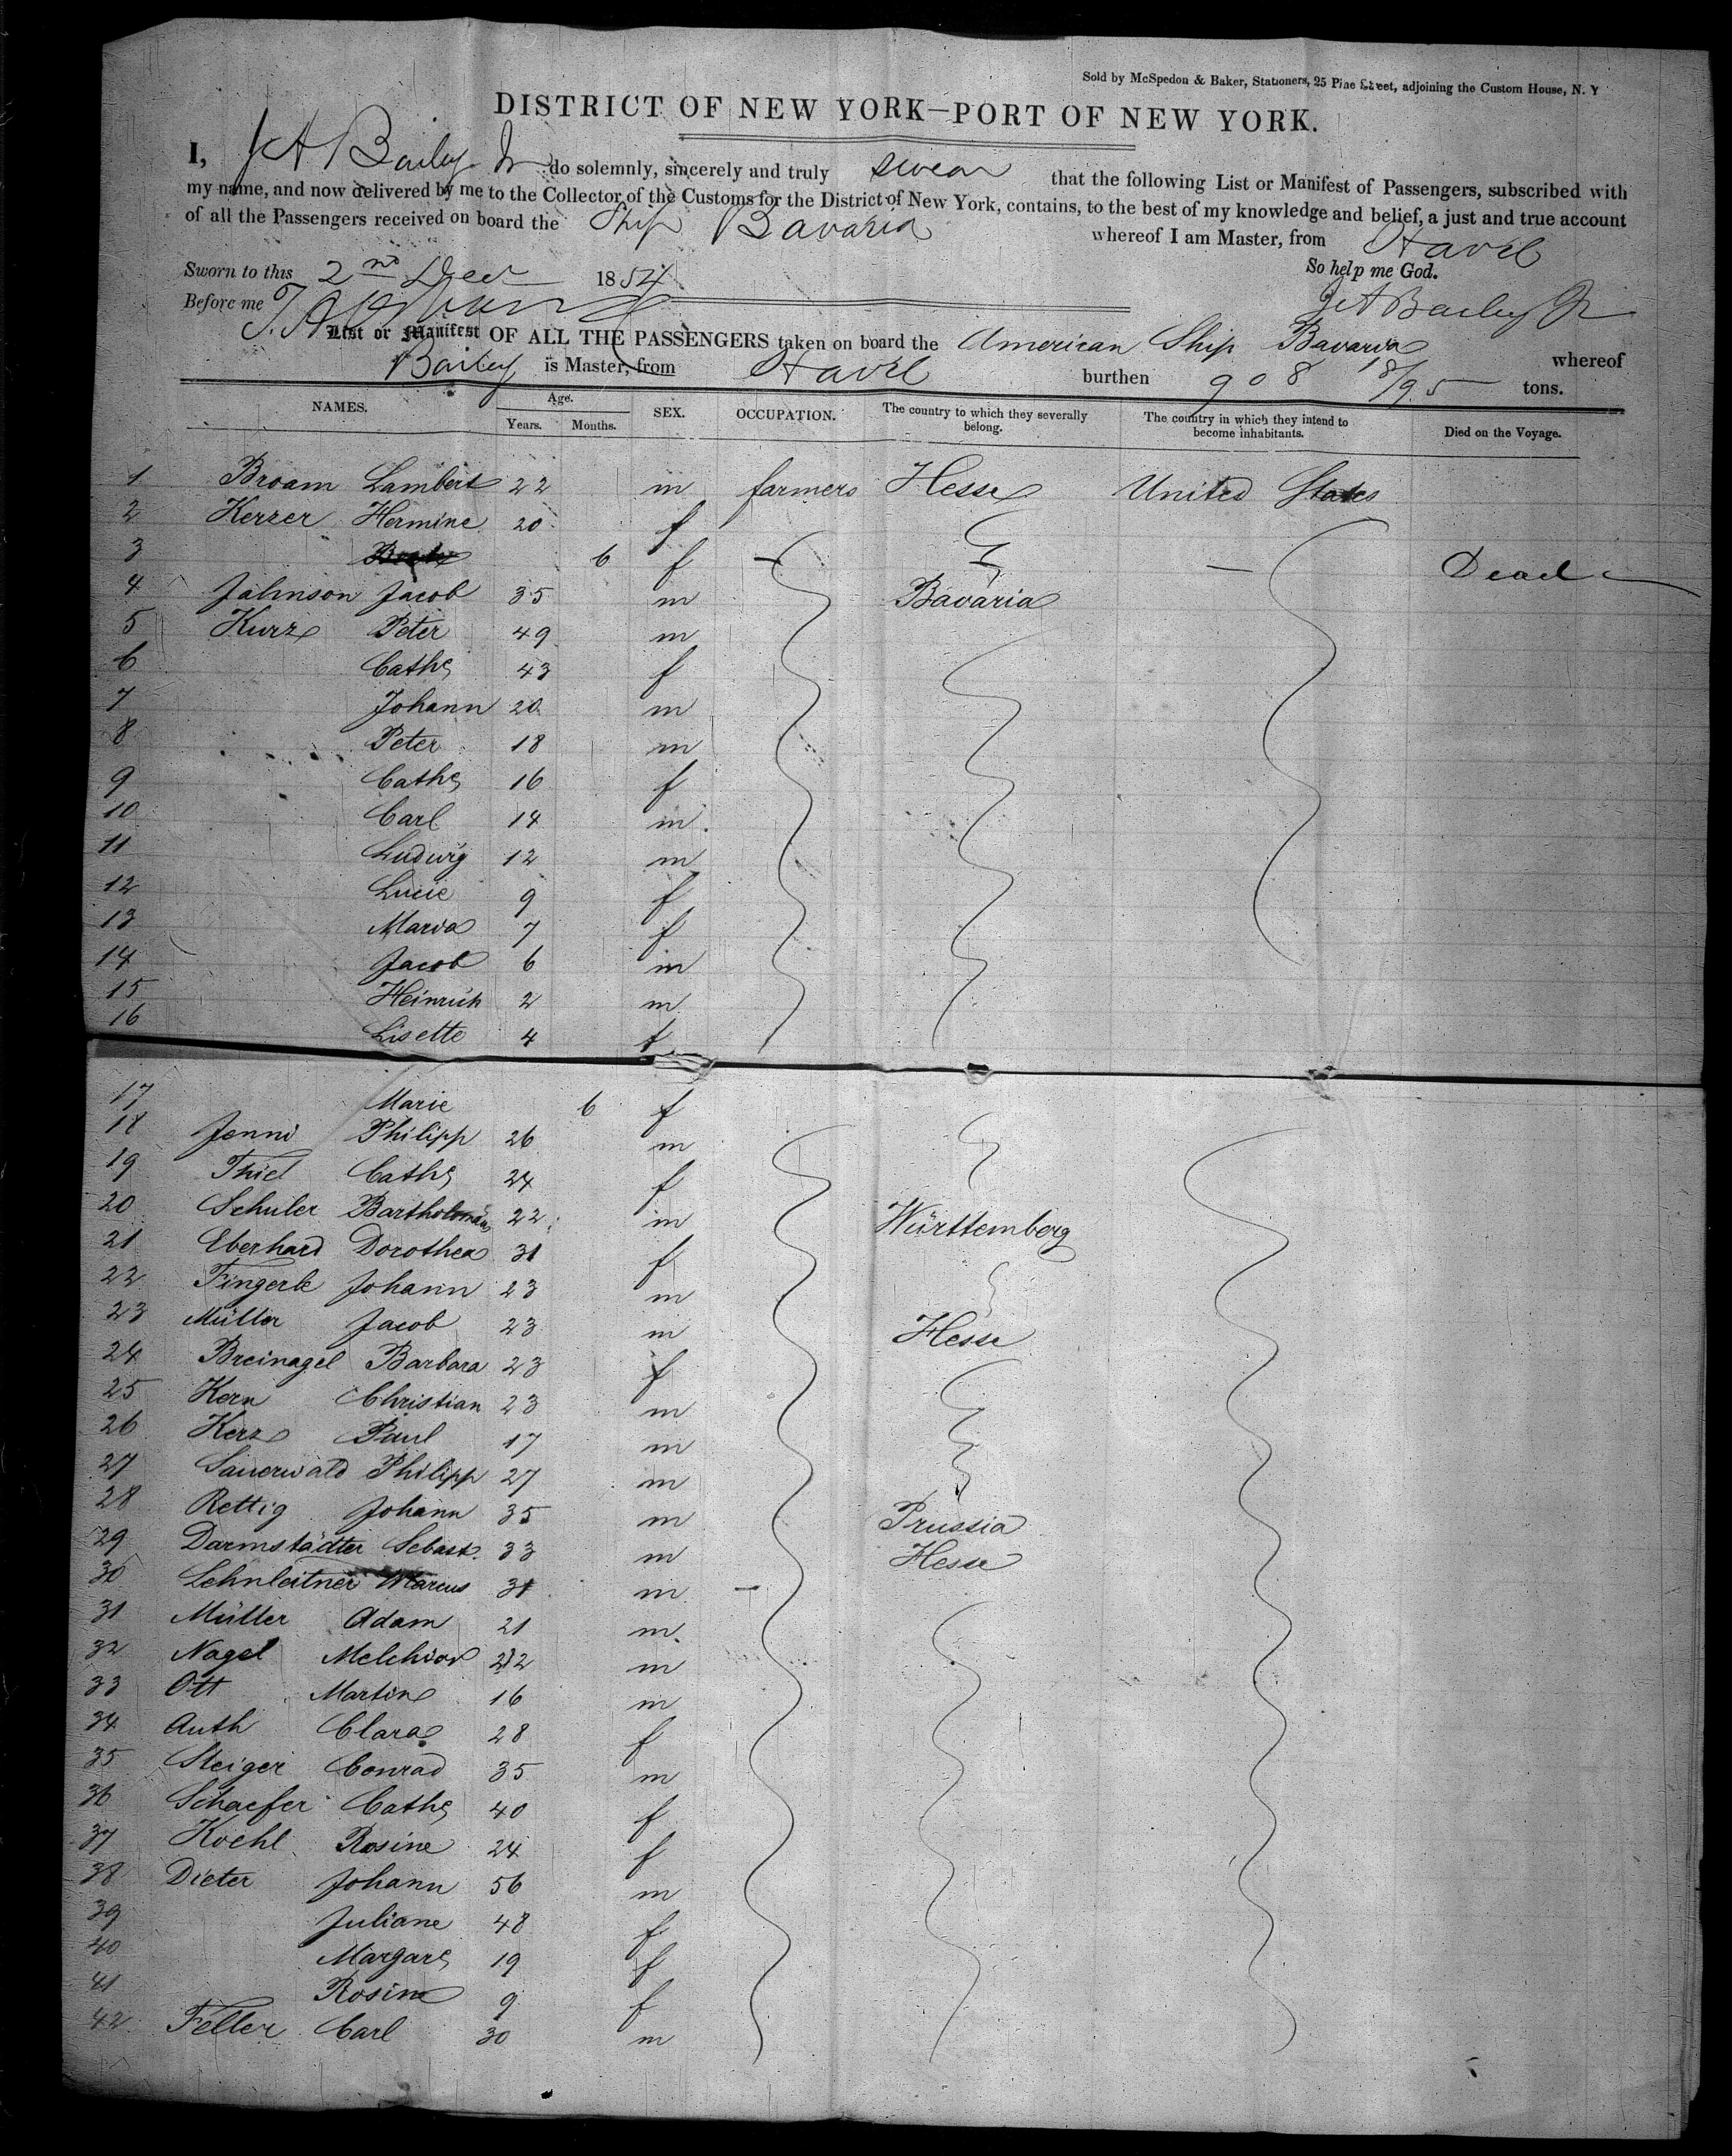 Sold by McSpedon & Baker, Stationers, 25 Pine Street, adjoining the Custom House, N. Y
DISTRICT OF NEW YORK—PORT OF NEW YORK.
I, J A Bailey Jr do solemnly, sincerely and truly swear that the following List or Manifest of Passengers, subscribed with
my name, and now delivered by me to the Collector of the Customs for the District of New York, contains, to the best of my knowledge and belief, a just and true account
of all the Passengers received on board the Ship Bavaria whereof I am Master, from Havre
Sworn to this 2nd Dec 1854 So help me God.
Before me J A Bailey Jr
List or Manifest OF ALL THE PASSENGERS taken on board the American Ship Bavaria whereof
Bailey is Master, from Havre burthen 908 18/95 tons.
NAMES. Age. Years. Months. SEX. OCCUPATION. The country to which they severally belong. The country in which they intend to become inhabitants. Died on the Voyage.
1 Broam Lambert 22 m farmers Hesse United States
2 Kerzer Hermine 20 f
3 6 f — — Dead
4 Jahnson Jacob 35 m Bavaria
5 Kurz Peter 49 m
6 Cathe 43 f
7 Johann 20 m
8 Peter 18 m
9 Cathe 16 f
10 Carl 14 m
11 Ludwig 12 m
12 Lucie 9 f
13 Maria 7 f
14 Jacob 6 m
15 Heinrich 2 m
16 Lisette 4 f
17 Marie 6 f
18 Jenni Philipp 26 m
19 Thiel Cathe 24 f
20 Schuler Bartholomäus 22 m Württemberg
21 Eberhard Dorothea 31 f
22 Fingerle Johann 23 m
23 Müller Jacob 23 m Hesse
24 Breinagel Barbara 23 f
25 Kern Christian 23 m
26 Kerz Paul 17 m
27 Sauerwald Philipp 27 m
28 Rettig Johann 35 m Prussia
29 Darmstädter Sebast. 33 m Hesse
30 Lehnleitner Marcus 31 m —
31 Müller Adam 21 m
32 Nagel Melchior 22 m
33 Ott Martin 16 m
34 Auth Clara 28 f
35 Steiger Conrad 35 m
36 Schaefer Cathe 40 f
37 Koehl Rosine 24 f
38 Dieter Johann 56 m
39 Juliane 48 f
40 Margare 19 f
41 Rosine 9 f
42 Feller Carl 30 m